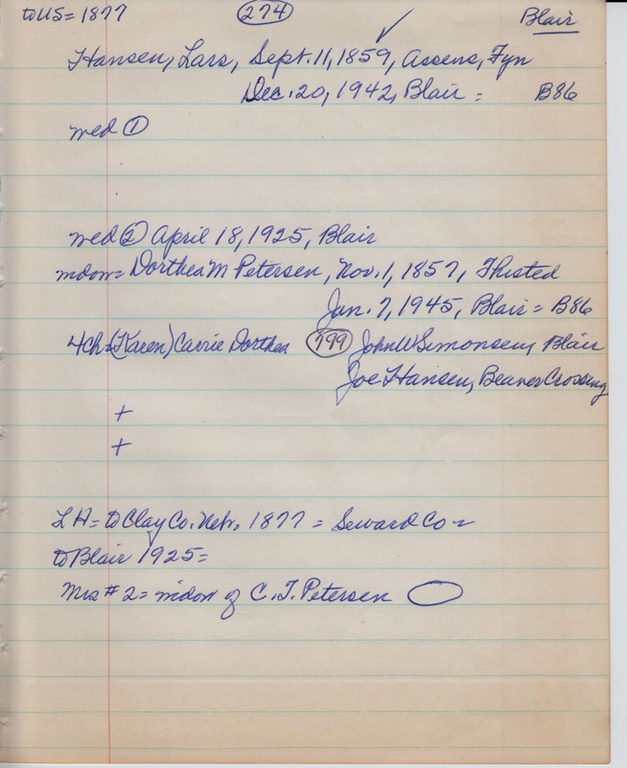 to US = 1877 274 Blair
Hansen, Lars, Sept. 11, 1859, Assens, Fyn
Dec. 20, 1942, Blair = B86
wed ①
wed ② April 18, 1925, Blair
widow = Dorthea M Petersen, Nov. 1, 1857, Thisted
Jan. 7, 1945, Blair = B86
4ch = (Karen) Carrie Dorthea 799 John W Simonsen, Blair
Joe Hansen, Beaver Crossing
+
+
LH = to Clay Co. Nebr. 1877 = Seward Co =
to Blair 1925 =
Mrs #2 = widow of C. T. Petersen